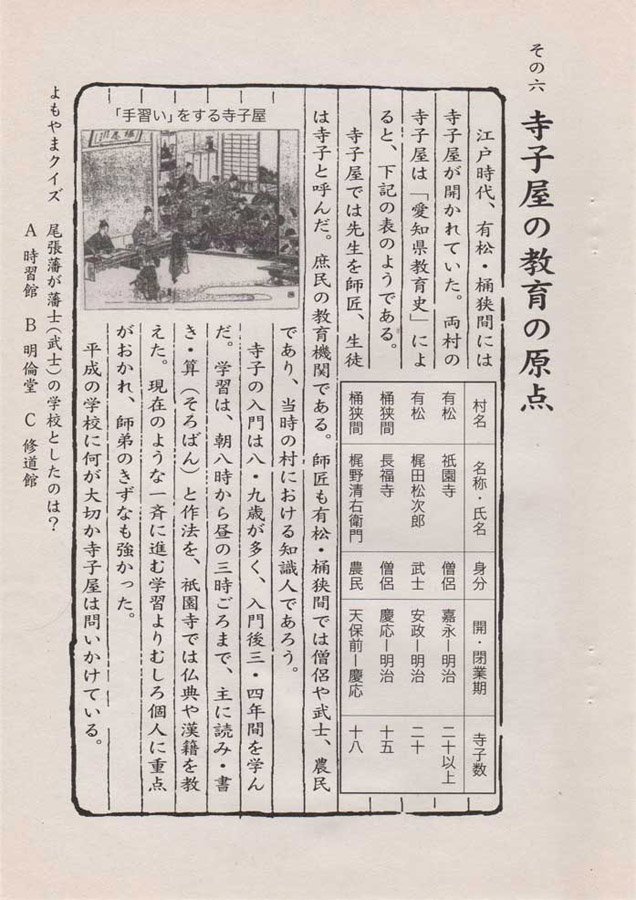 その六
寺子屋の教育の原点
江戸時代、有松・桶狭間には
寺子屋が開かれていた。両村の
寺子屋は「愛知県教育史」によ
ると、下記の表のようである。
寺子屋では先生を師匠、生徒
は寺子と呼んだ。庶民の教育機関である。師匠も有松・桶狭間では僧侶や武士、農民
であり、当時の村における知識人であろう。
寺子の入門は八・九歳が多く、入門後三・四年間を学ん
だ。学習は、朝八時から昼の三時ごろまで、主に読み・書
き・算（そろばん）と作法を、祇園寺では仏典や漢籍を教
えた。現在のような一斉に進む学習よりむしろ個人に重点
がおかれ、師弟のきずなも強かった。
平成の学校に何が大切か寺子屋は問いかけている。
村名 名称・氏名 身分 開・閉業期 寺子数
有松 祇園寺 僧侶 嘉永ー明治 二十以上
有松 梶田松次郎 武士 安政ー明治 二十
桶狭間 長福寺 僧侶 慶応ー明治 十五
桶狭間 梶野清右衛門 農民 天保前ー慶応 十八
「手習い」をする寺子屋
よもやまクイズ 尾張藩が藩士（武士）の学校としたのは？
A 時習館 B 明倫堂 C 修道館